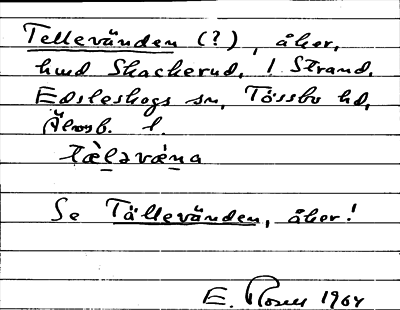 Tellevänden (?), åker,
hmd Skackerud, l. Strand,
Edsleskogs sn, Tössbo hd,
Älvsb. l.
tæ̀ləvæ̀na
Se Tällevänden, åker!
E. Rosen 1964